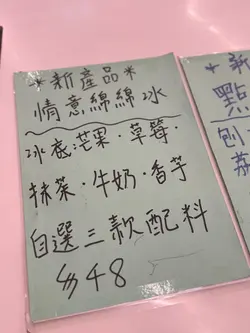 *新產品*
情意綿綿冰
冰底芒果·草莓·
抹茶·牛奶·香芋
自選三款配料
$48
*新
點
刨
荔